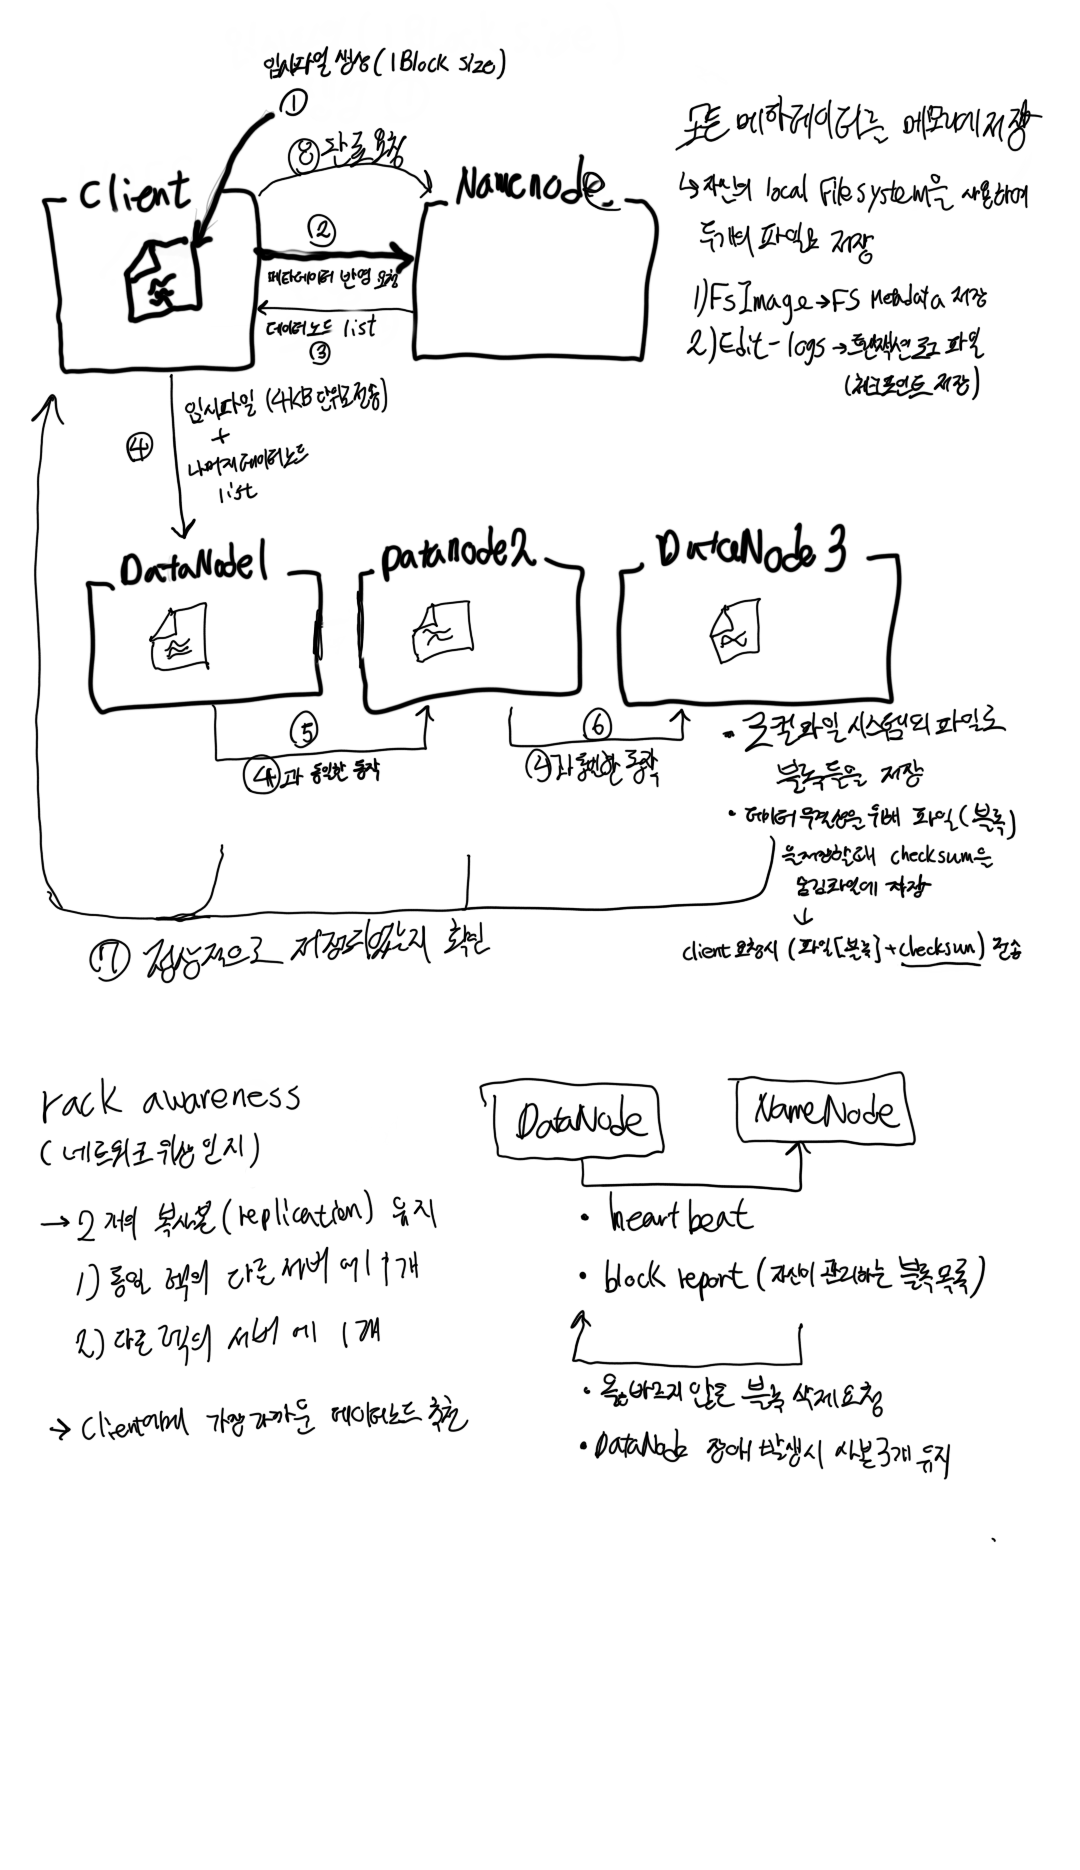 임시파일 생성(1Block size)
①
⑧ 완료 요청
Client
Namenode
②
메타데이터 반영 요청
데이터노드 list
③
모든 메타데이터는 메모리에 저장
↳ 자신의 local filesystem을 사용하여
두개의 파일로 저장
1) FsImage → FS Metadata 저장
2) Edit-logs → 트랜잭션 로그 파일
(체크포인트 저장)
④
임시파일 (4KB 단위로 전송)
+
나머지 데이터노드
list
DataNode1
Datanode2
DataNode3
⑤
④과 동일한 동작
⑥
④과 동일한 동작
• 로컬파일 시스템의 파일로
블록들을 저장
• 데이터 무결성을 위해 파일(블록)
을 저장할때 checksum을
숨김파일에 저장
↓
client 요청시 (파일[블록] + checksum) 전송
⑦ 정상적으로 저장되었는지 확인
rack awareness
(네트워크 위상 인지)
→ 2개의 복사본(replication) 유지
1) 동일 렉의 다른 서버에 1개
2) 다른 렉의 서버에 1개
→ Client에게 가장 가까운 데이터노드 추천
DataNode
NameNode
• heartbeat
• block report (자신이 관리하는 블록 목록)
• 올바르지 않은 블록 삭제 요청
• DataNode 장애 발생시 사본 3개 유지